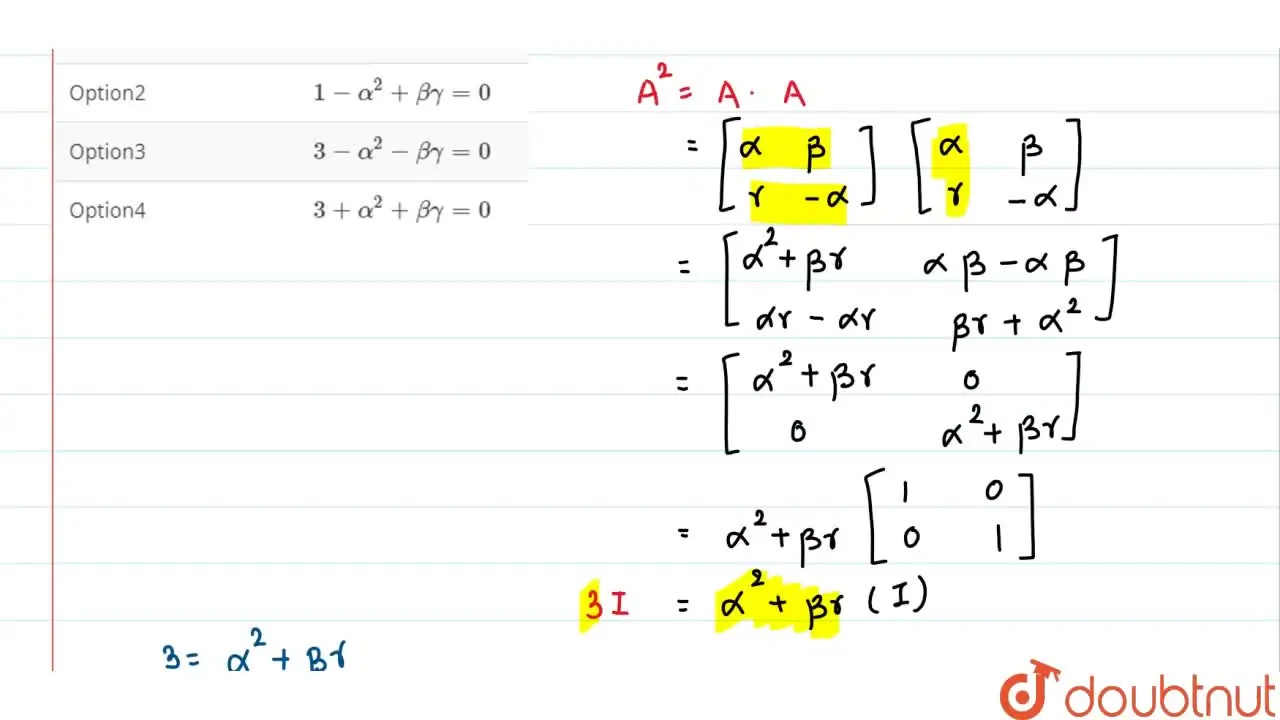 Option2 1 − α² + βγ = 0
Option3 3 − α² − βγ = 0
Option4 3 + α² + βγ = 0
A² = A · A
= [α β
γ −α] [α β
γ −α]
= [α² + βγ αβ − αβ
αγ − αγ βγ + α²]
= [α² + βγ 0
0 α² + βγ]
= α² + βγ [1 0
0 1]
3I = α² + βγ (I)
3 = α² + βγ
doubtnut